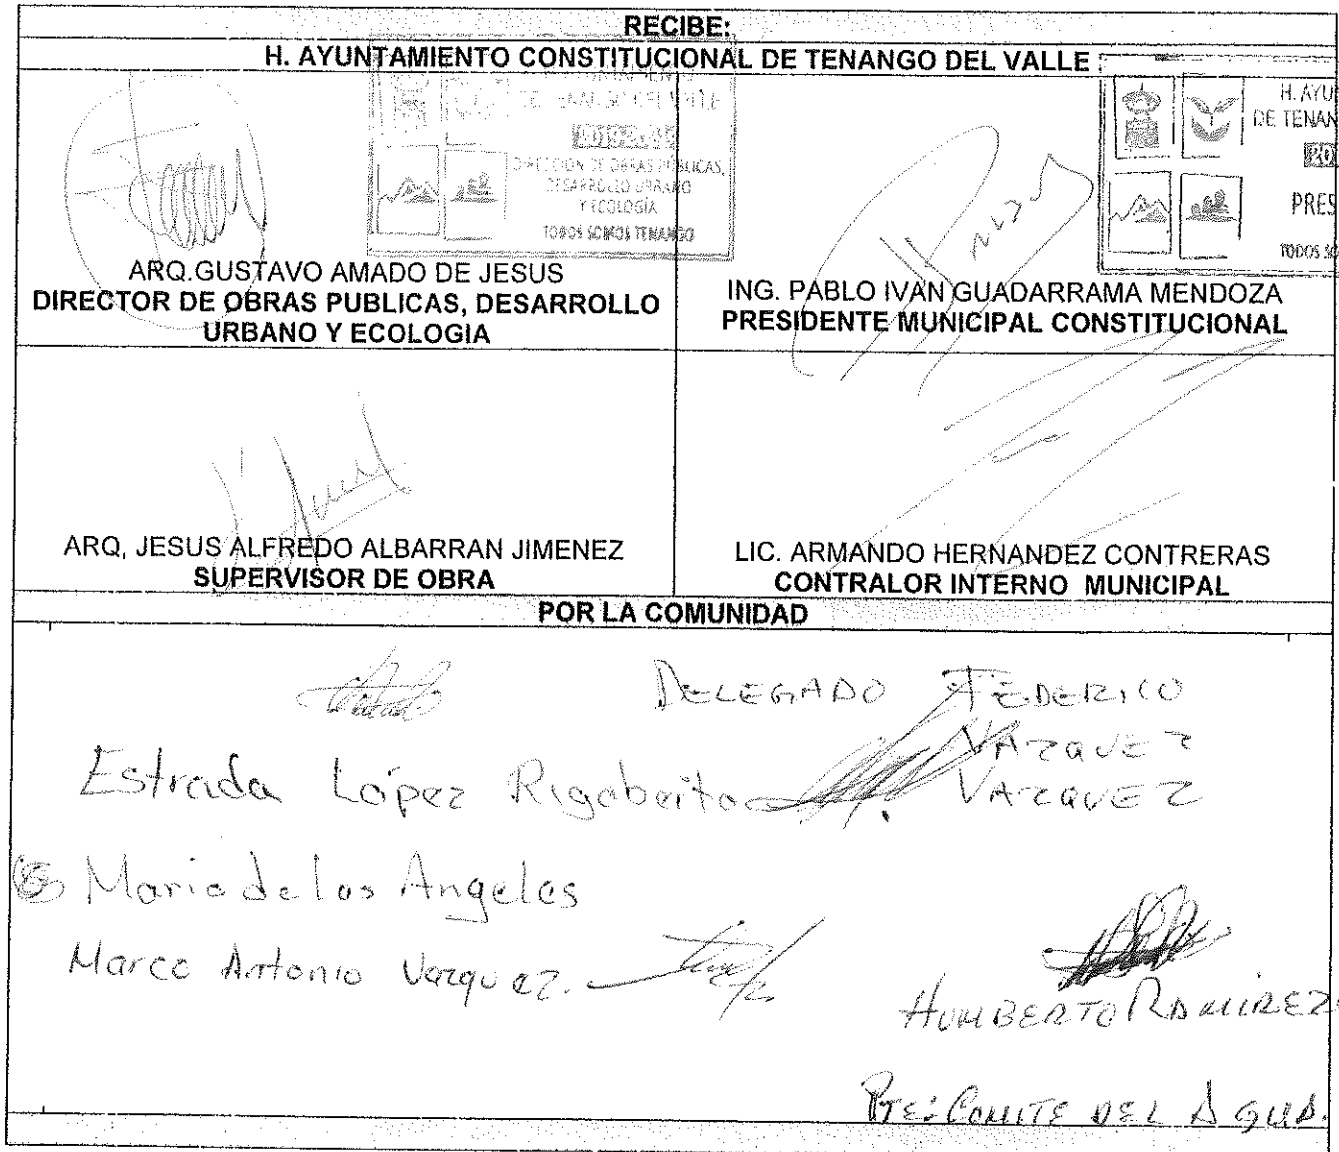 RECIBE:
H. AYUNTAMIENTO CONSTITUCIONAL DE TENANGO DEL VALLE
DIRECCION DE OBRAS PUBLICAS,
DESARROLLO URBANO
Y ECOLOGÍA
TODOS SOMOS TENANGO
H. AYU
DE TENAN
20
PRES
TODOS SO
ARQ.GUSTAVO AMADO DE JESUS
DIRECTOR DE OBRAS PUBLICAS, DESARROLLO
URBANO Y ECOLOGIA
ING. PABLO IVAN GUADARRAMA MENDOZA
PRESIDENTE MUNICIPAL CONSTITUCIONAL
ARQ, JESUS ALFREDO ALBARRAN JIMENEZ
SUPERVISOR DE OBRA
LIC. ARMANDO HERNANDEZ CONTRERAS
CONTRALOR INTERNO MUNICIPAL
POR LA COMUNIDAD
DELEGADO FEDERICO
VAZQUEZ
VAZQUEZ
Estrada López Rigoberto
Maria de los Angeles
Marco Antonio Vazquez.
HUMBERTO RAMIREZ
PTE: COMITE DEL AGUA.